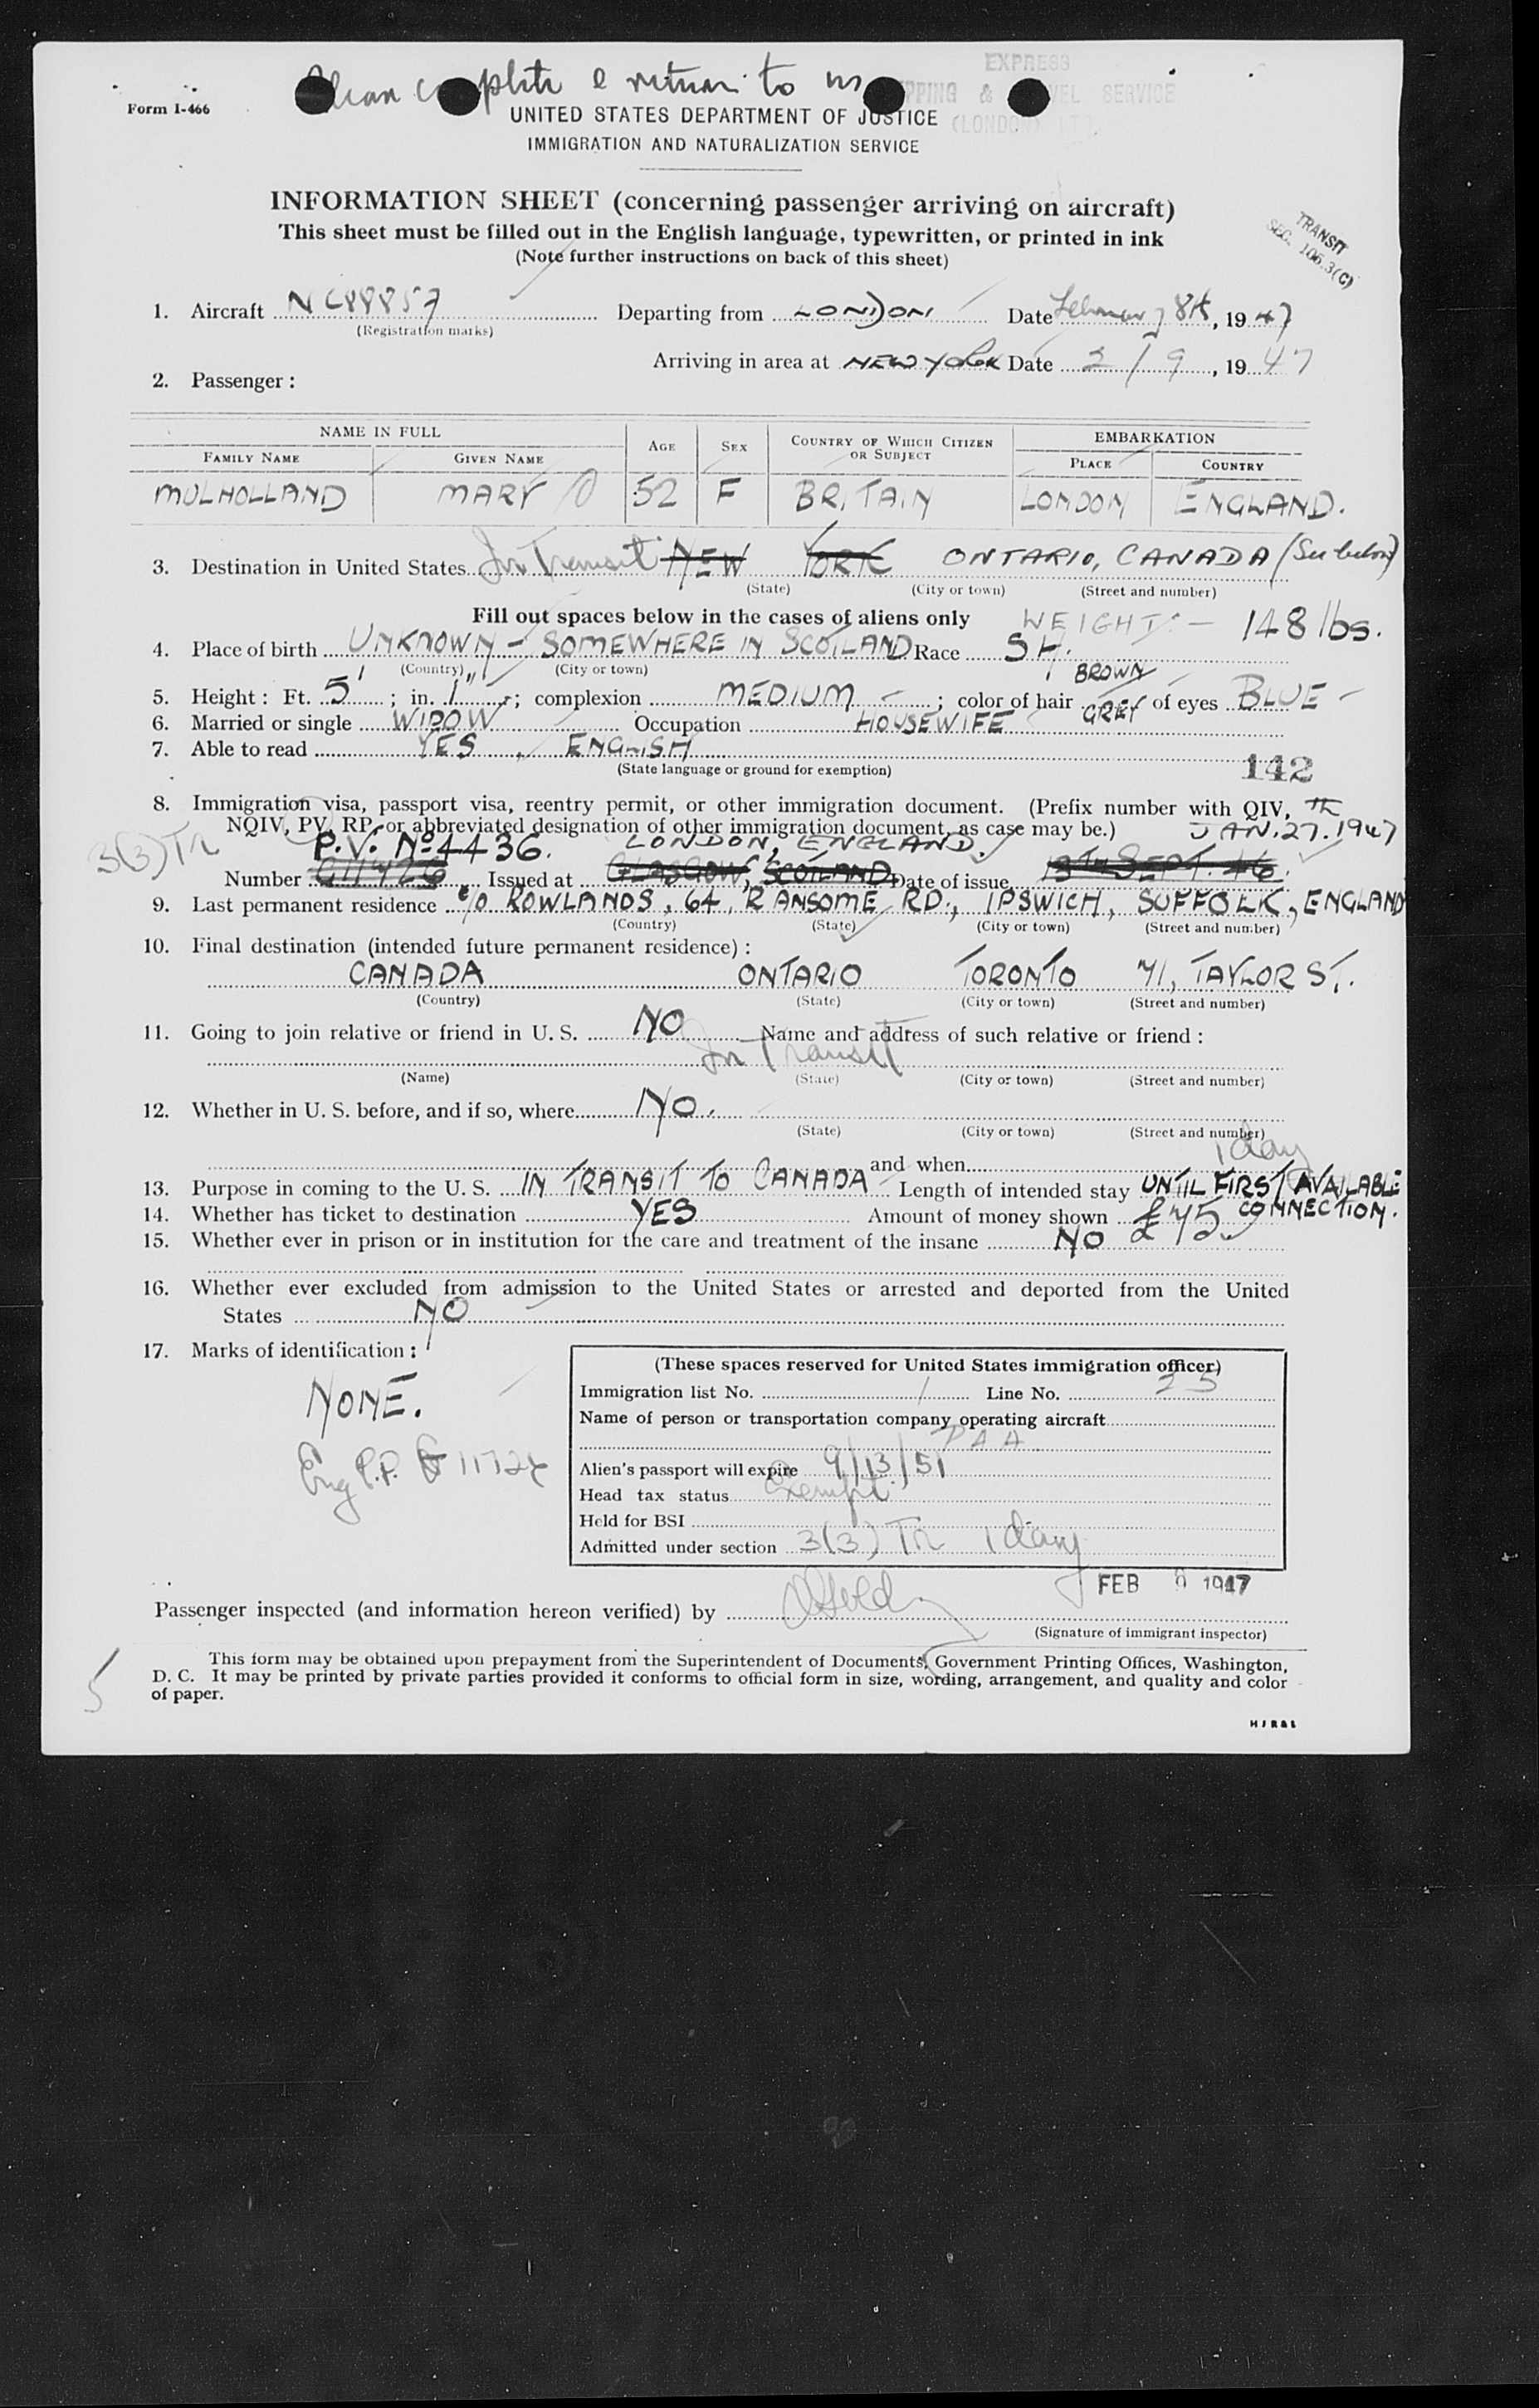 Please complete & return to us
EXPRESS
SHIPPING & TRAVEL SERVICE
(LONDON) LTD.
Form I-466
UNITED STATES DEPARTMENT OF JUSTICE
IMMIGRATION AND NATURALIZATION SERVICE
INFORMATION SHEET (concerning passenger arriving on aircraft)
This sheet must be filled out in the English language, typewritten, or printed in ink
(Note further instructions on back of this sheet)
TRANSIT
SEC. 106.3(C)
1. Aircraft NC88857 Departing from LONDON Date February 8th, 1947
(Registration marks)
Arriving in area at NEW YORK Date 2/9, 1947
2. Passenger:
NAME IN FULL AGE SEX COUNTRY OF WHICH CITIZEN OR SUBJECT EMBARKATION
FAMILY NAME GIVEN NAME PLACE COUNTRY
MULHOLLAND MARY 52 F BRITAIN LONDON ENGLAND.
3. Destination in United States In Transit NEW YORK ONTARIO, CANADA (See below)
(State) (City or town) (Street and number)
Fill out spaces below in the cases of aliens only WEIGHT:- 148 lbs.
4. Place of birth UNKNOWN - SOMEWHERE IN SCOTLAND Race SH.
(Country) (City or town)
BROWN
5. Height: Ft. 5'; in. 1"; complexion MEDIUM; color of hair GREY of eyes BLUE
6. Married or single WIDOW Occupation HOUSEWIFE
7. Able to read YES, ENGLISH
(State language or ground for exemption)
142
8. Immigration visa, passport visa, reentry permit, or other immigration document. (Prefix number with QIV,
NQIV, PV, RP, or abbreviated designation of other immigration document, as case may be.) JAN. 27.TH 1947
3(3) Tr
P.V. No 4436. LONDON, ENGLAND.
Number G11726 Issued at GLASGOW, SCOTLAND Date of issue 13TH SEPT. 46.
9. Last permanent residence c/o ROWLANDS, 64, RANSOME RD., IPSWICH, SUFFOLK, ENGLAND
(Country) (State) (City or town) (Street and number)
10. Final destination (intended future permanent residence):
CANADA ONTARIO TORONTO 71, TAYLOR ST.
(Country) (State) (City or town) (Street and number)
11. Going to join relative or friend in U. S. NO Name and address of such relative or friend:
In Transit
(Name) (State) (City or town) (Street and number)
12. Whether in U. S. before, and if so, where NO.
(State) (City or town) (Street and number)
and when
1 day
13. Purpose in coming to the U. S. IN TRANSIT TO CANADA Length of intended stay UNTIL FIRST AVAILABLE CONNECTION.
14. Whether has ticket to destination YES Amount of money shown £75
15. Whether ever in prison or in institution for the care and treatment of the insane NO
16. Whether ever excluded from admission to the United States or arrested and deported from the United
States NO
17. Marks of identification:
NONE.
Eng P.P. G 11726
(These spaces reserved for United States immigration officer)
Immigration list No. 1 Line No. 25
Name of person or transportation company operating aircraft
PAA
Alien's passport will expire 9/13/51
Head tax status Exempt
Held for BSI
Admitted under section 3(3) Tr 1 day
FEB 9 1947
Passenger inspected (and information hereon verified) by
(Signature of immigrant inspector)
This form may be obtained upon prepayment from the Superintendent of Documents, Government Printing Offices, Washington,
D. C. It may be printed by private parties provided it conforms to official form in size, wording, arrangement, and quality and color
of paper.
5
HJR&L